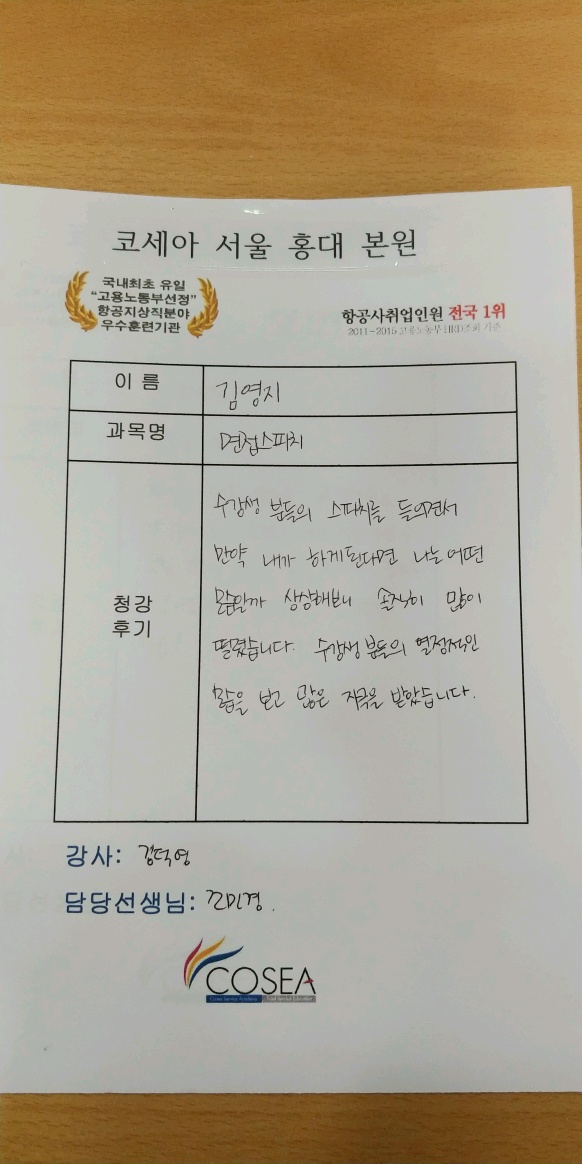 코세아 서울 홍대 본원
국내최초 유일
“고용노동부선정”
항공지상직분야
우수훈련기관
항공사취업인원 전국 1위
2011-2015 고용노동부 HRD조회 기준
이 름
김영지
과목명
면접스피치
청강
후기
수강생 분들의 스피치를 들으면서
만약 내가 하게된다면 나는 어떤
모습일까 상상해보니 솔직히 많이
떨렸습니다. 수강생 분들의 열정적인
모습을 보고 많은 자극을 받았습니다.
강사: 김덕영
담당선생님: 전민경.
COSEA
Cosea Service Academy Total Service Education